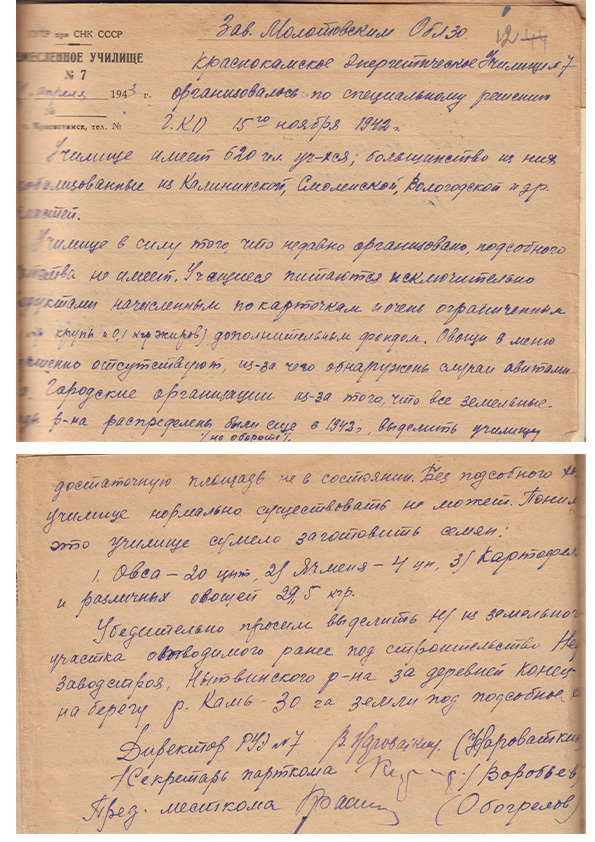 при СНК СССР
УЧИЛИЩЕ
№ 7
апреля 1943 г.
№
Краснокамск, тел. №
Зав. Молотовским ОблЗО.
12
Краснокамское Энергетическое Училище №7
организовалось по специальному решению
15го ноября 1942 г
Училище имеет 620 чл. уч-хся; большинство из них
из Калининской, Смоленской, Вологодской и др.
Училище в силу того, что недавно организовано, подсобного
не имеет. Учащиеся питаются исключительно
начисленным по карточкам и очень ограниченным
крупы и 0,1 кгр жиров) дополнительным фондом. Овощи в меню
отсутствуют, из-за чего обнаружены случаи авитами-
Городские организации из-за того, что все земельные
р-на распределены были еще в 1942 г, выделить училищу
(на обороте).
достаточную площадь не в состоянии. Без подсобного х-ва
училище нормально существовать не может.
это училище сумело заготовить семян:
1. Овса – 20 цнт, 2) Ячменя – 4 цн, 3) Картофеля
и различных овощей 29,5 кгр.
Убедительно просим выделить н/ из земельного
участка отводимого ранее под строительство
Заводстроя, Нытвинского р-на за деревней Конец-
на берегу р. Камы - 30 га земли под подсобное
Директор РУЭ №7
Секретарь парткома Воробьев
Пред. месткома